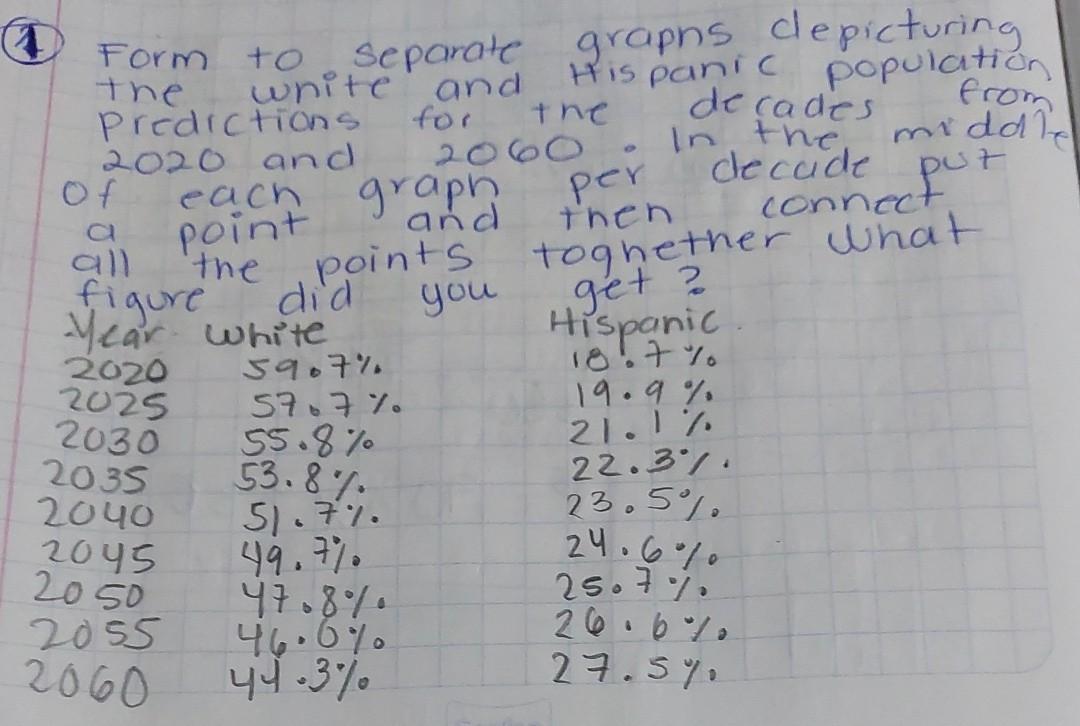 1 Form to separate graphs depicturing
the white and Hispanic population
predictions for the decades from
2020 and 2060. In the middle
of each graph per decade put
a point and then connect
all the points toghether what
figure did you get?
Year White Hispanic.
2020 59.7% 18.7%
2025 57.7% 19.9%
2030 55.8% 21.1%
2035 53.8% 22.3%.
2040 51.7% 23.5%
2045 49.7% 24.6%
2050 47.8% 25.7%
2055 46.0% 26.6%
2060 44.3% 27.5%